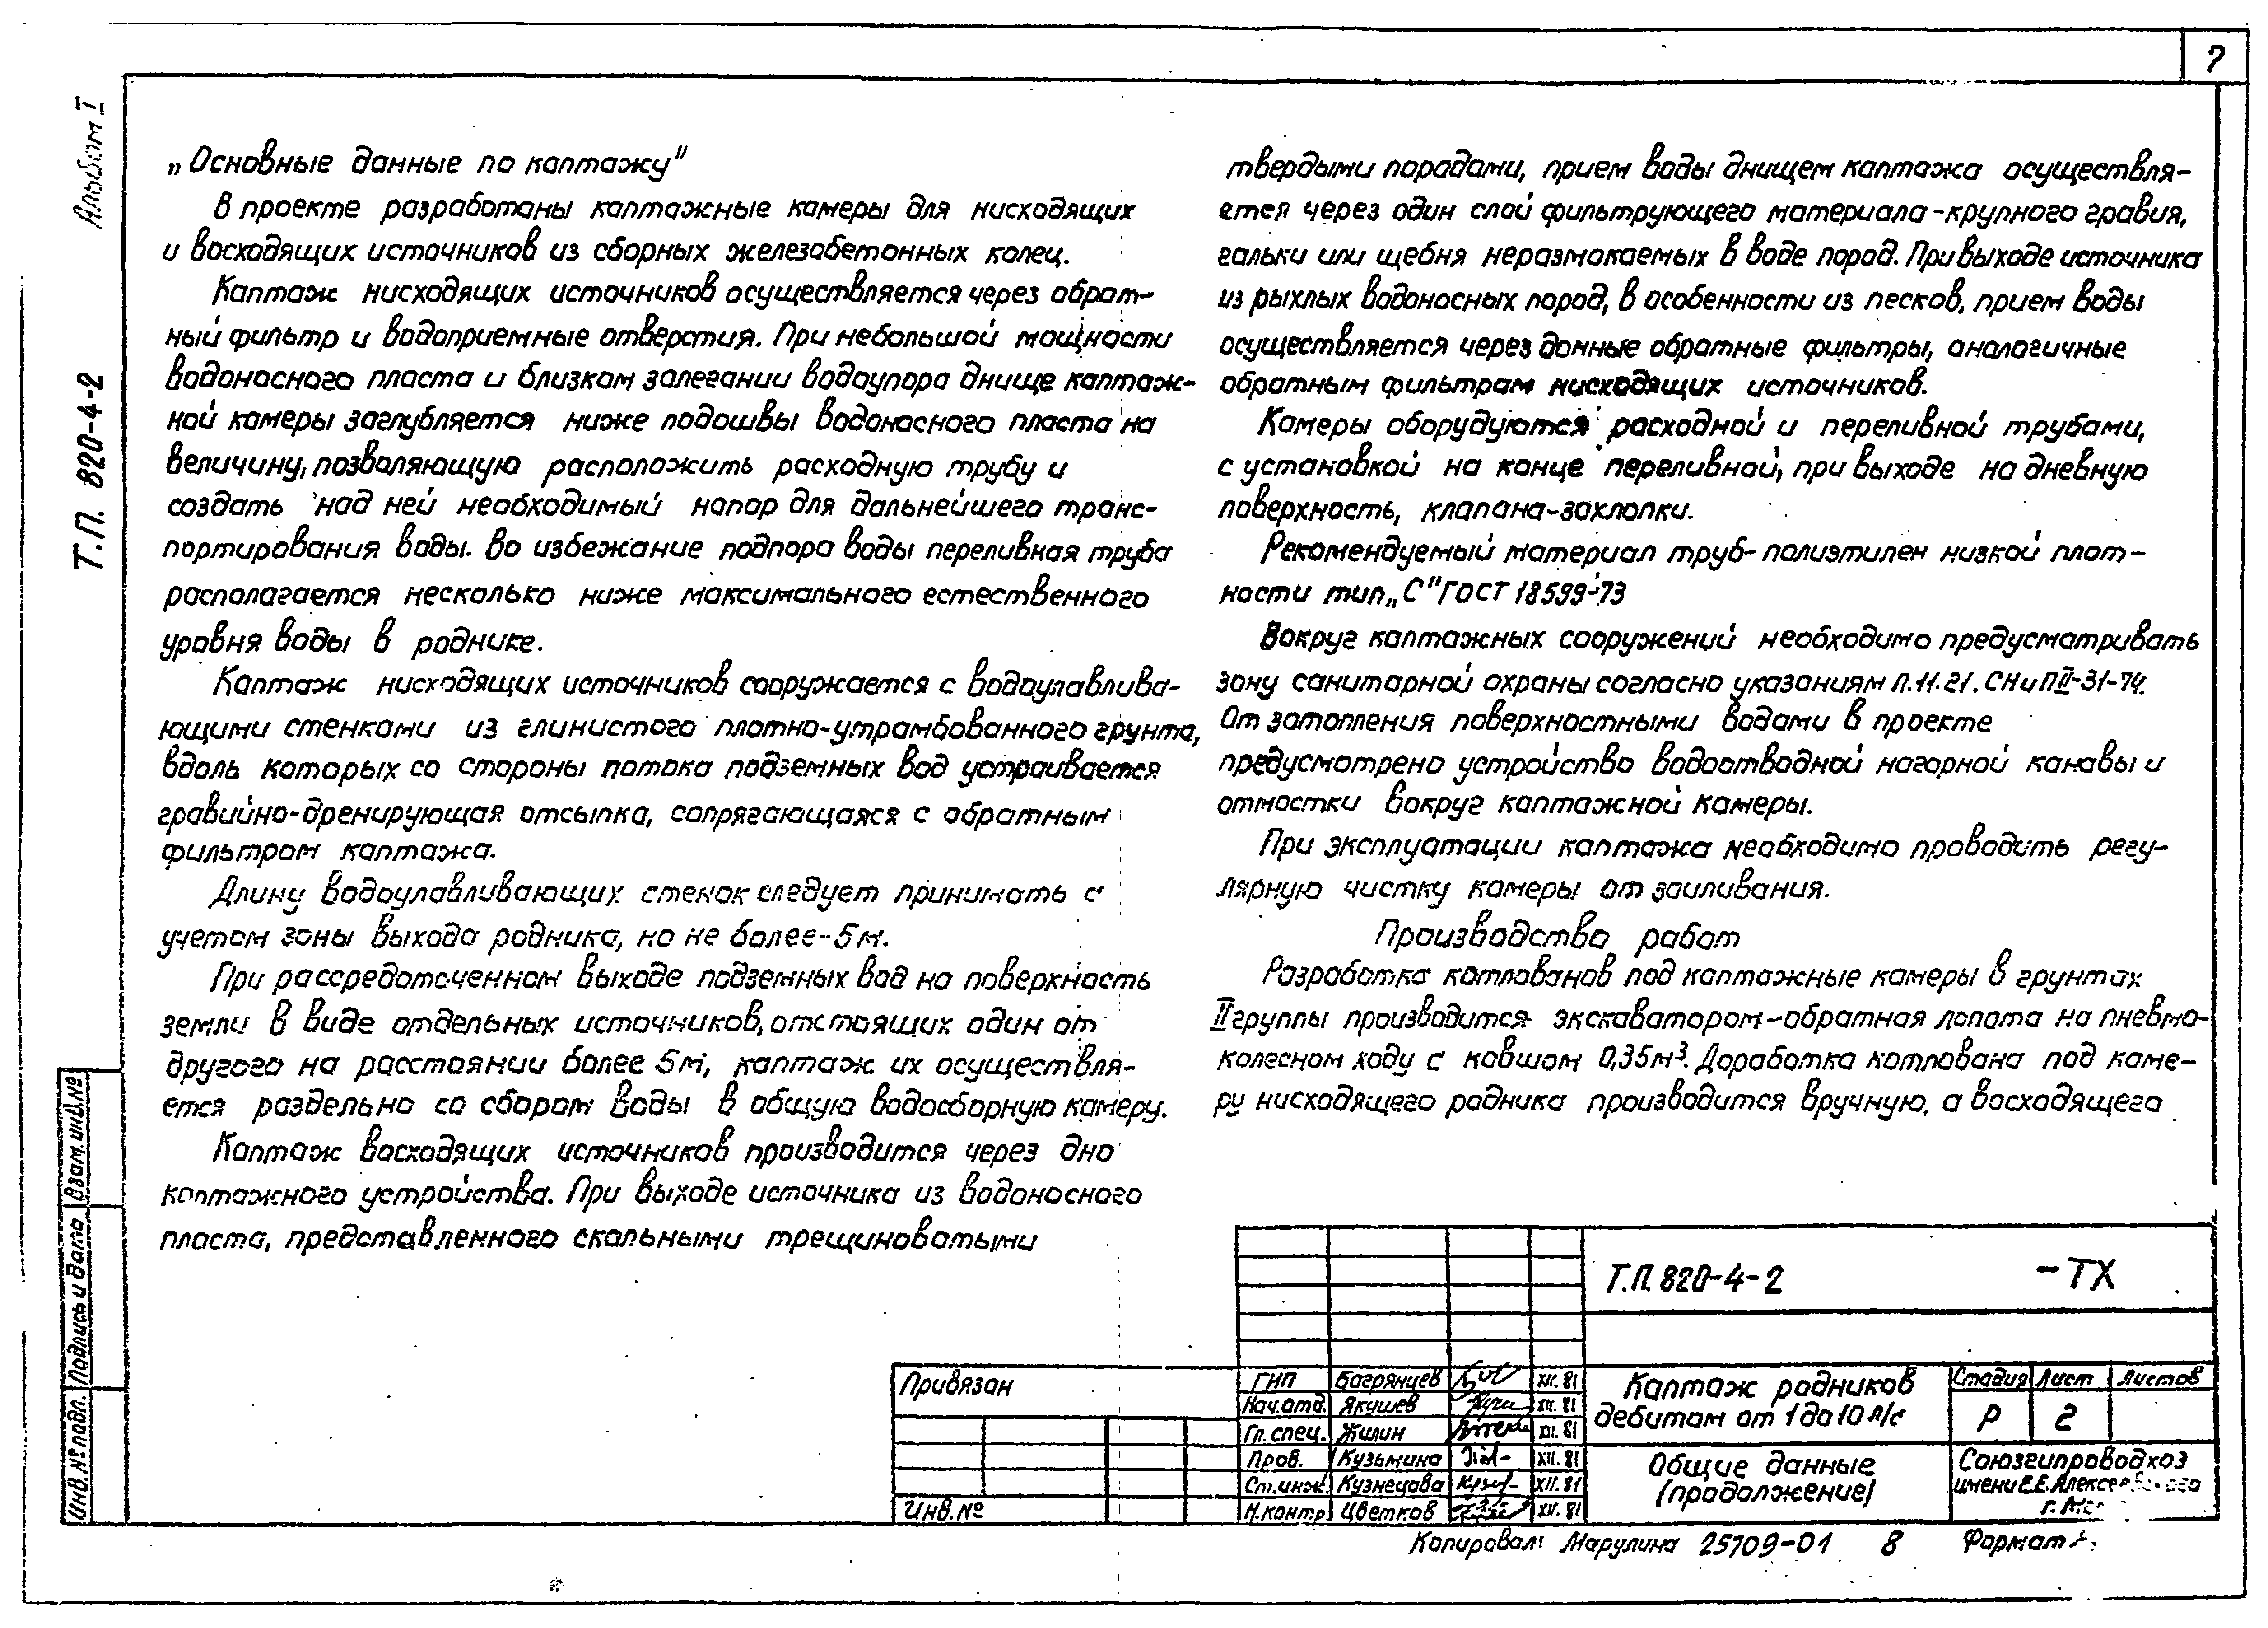 7
Альбом I
Т.П. 820-4-2
„Основные данные по каптажу"
В проекте разработаны каптажные камеры для нисходящих
и восходящих источников из сборных железобетонных колец.
Каптаж нисходящих источников осуществляется через обрат-
ный фильтр и водоприемные отверстия. При небольшой мощности
водоносного пласта и близком залегании водоупора днище каптаж-
ной камеры заглубляется ниже подошвы водоносного пласта на
величину, позволяющую расположить расходную трубу и
создать над ней необходимый напор для дальнейшего транс-
портирования воды. Во избежание подпора воды переливная труба
располагается несколько ниже максимального естественного
уровня воды в роднике.
Каптаж нисходящих источников сооружается с водоулавлива-
ющими стенками из глинистого плотно-утрамбованного грунта,
вдоль которых со стороны потока подземных вод устраивается
гравийно-дренирующая отсыпка, сопрягающаяся с обратным
фильтром каптажа.
Длину водоулавливающих стенок следует принимать с
учетом зоны выхода родника, но не более-5м.
При рассредоточенном выходе подземных вод на поверхность
земли в виде отдельных источников, отстоящих один от
другого на расстоянии более 5м, каптаж их осуществля-
ется раздельно со сбором воды в общую водосборную камеру.
Каптаж восходящих источников производится через дно
каптажного устройства. При выходе источника из водоносного
пласта, представленного скальными трещиноватыми
твердыми породами, прием воды днищем каптажа осуществля-
ется через один слой фильтрующего материала-крупного гравия,
гальки или щебня неразмокаемых в воде пород. При выходе источника
из рыхлых водоносных пород, в особенности из песков, прием воды
осуществляется через донные обратные фильтры, аналогичные
обратным фильтрам нисходящих источников.
Камеры оборудуются расходной и переливной трубами,
с установкой на конце переливной, при выходе на дневную
поверхность, клапана-захлопки.
Рекомендуемый материал труб-полиэтилен низкой плот-
ности тип „С" ГОСТ 18599-73
Вокруг каптажных сооружений необходимо предусматривать
зону санитарной охраны согласно указаниям п.11.21. СНиП II-31-74.
От затопления поверхностными водами в проекте
предусмотрено устройство водоотводной нагорной канавы и
отмостки вокруг каптажной камеры.
При эксплуатации каптажа необходимо проводить регу-
лярную чистку камеры от заиливания.
Производство работ
Разработка котлованов под каптажные камеры в грунтах
II группы производится экскаватором-обратная лопата на пневмо-
колесном ходу с ковшом 0,35м³. Доработка котлована под каме-
ру нисходящего родника производится вручную, а восходящего
Взам. инв.№
Подпись и дата
Инв. № подл.
Привязан
Инв. №
ГИП Багрянцев XII. 81
Нач.отд. Якушев XII. 81
Гл.спец. Жилин XII. 81
Пров. Кузьмина XII. 81
Ст.инж. Кузнецова XII. 81
Н.контр Цветков XII. 81
Т.П. 820-4-2 -ТХ
Каптаж родников
дебитом от 1 до 10 л/с
Стадия Лист Листов
Р 2
Общие данные
(продолжение)
Союзгипроводхоз
имени Е.Е. Алексеевского
г.
Копировал: Марулина 25709-01 8 Формат